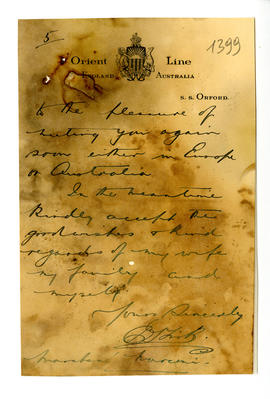 5
1399
Orient Line
England Australia
S. S. Orford.
to the pleasure of
meeting you again
soon either in Europe
or Australia
In the meantime
kindly accept the
good wishes & kind
regards of my wife
my family and
myself.
Yours Sincerely